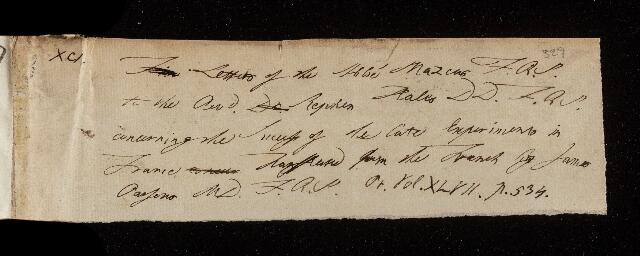 XCI.
329
Letters of the Abbé Mazeas F.R.S.
to the Revd. Stephen Hales D.D. F.R.S.
concerning the Success of the late Experiments in
France translated from the French by James
Parsons M.D. F.R.S. Pr. Vol. XLVII. p. 534.